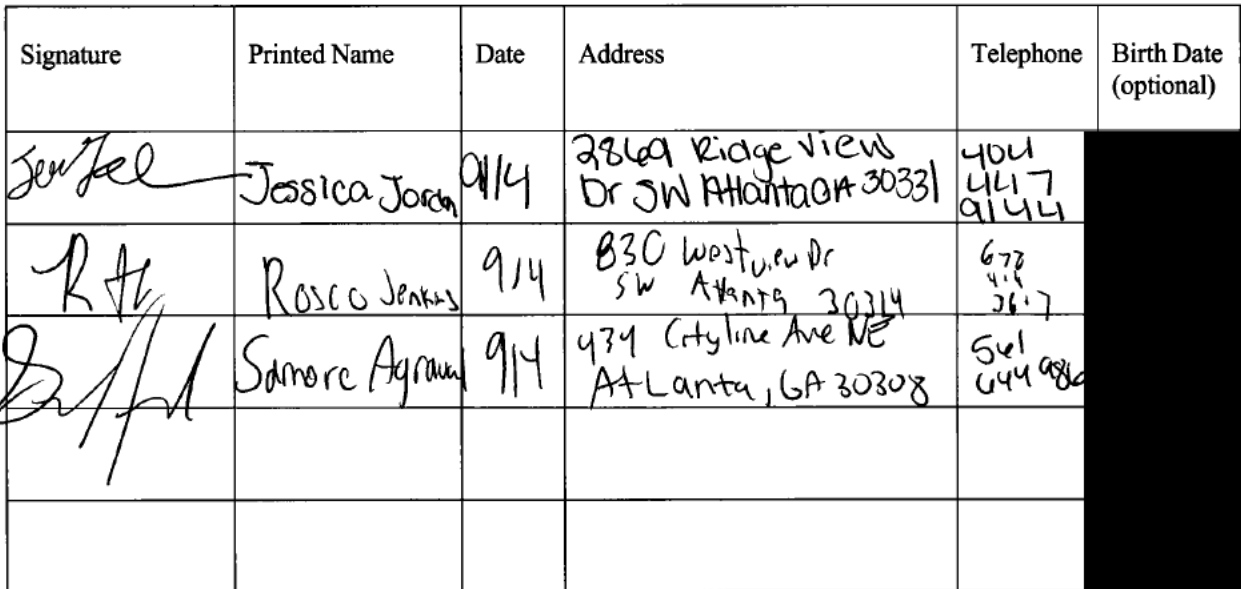 Signature Printed Name Date Address Telephone Birth Date
(optional)
Jessica Jordan 9/4 2869 Ridge View
Dr SW Atlanta GA 30331
404
447
9144
Rosco Jenkins 9/4 830 Westview Dr
SW Atlanta 30314
678
3617
9/4 434 Cityline Ave NE
Atlanta, GA 30308
561
644